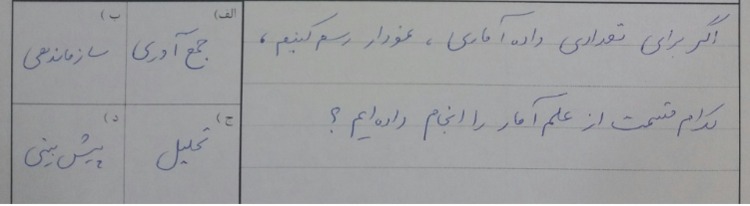 اگر برای تعدادی داده آماری ، نمودار رسم کنیم ،
کدام قسمت از علم آمار را انجام داده‌ایم ؟
الف) جمع آوری
ب) سازماندهی
ج) تحلیل
د) پیش بینی